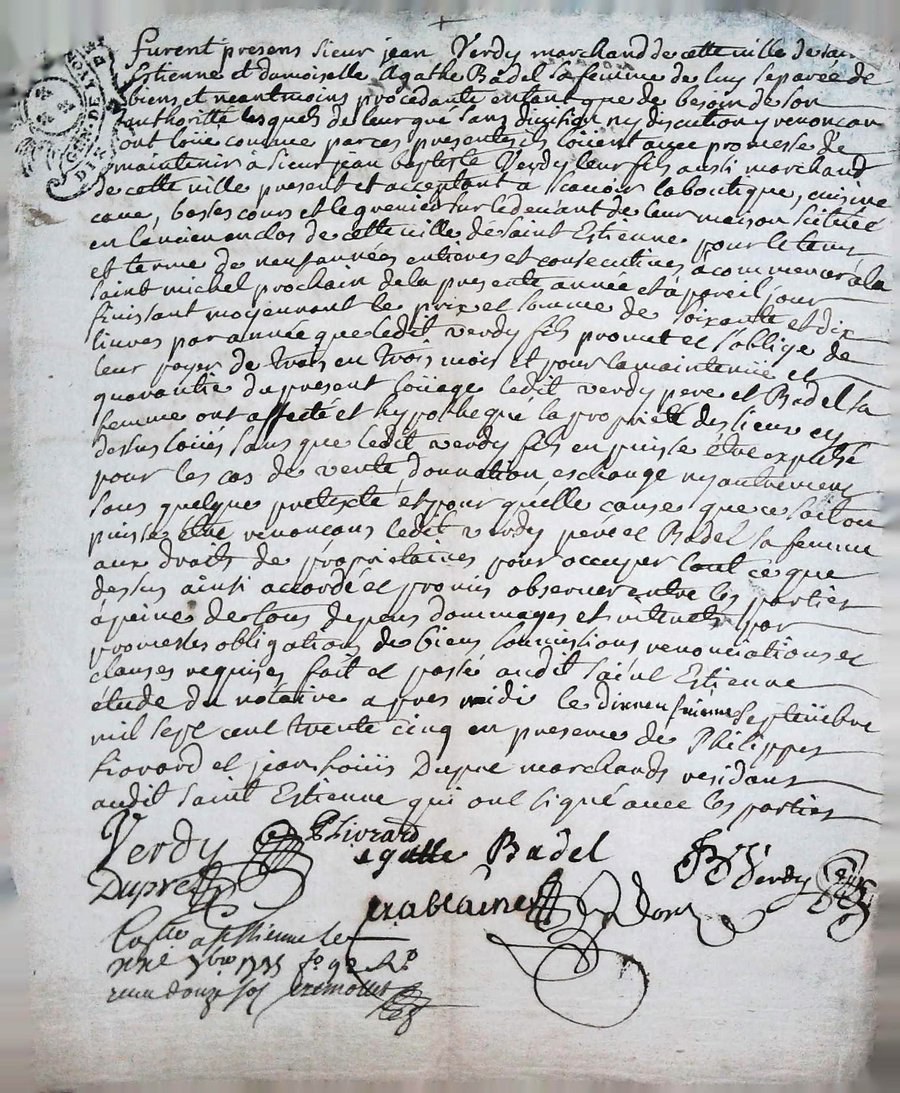 GEN. DE
DIX
furent presens sieur jean Verdy marchand de cette ville de saint
Estienne et damoiselle Agathe Badel sa femme de luy separée de
biens et neantmoins procedante entant que de besoin de son
authorité lesquels de leur gré sans division ny discution y renoncan
ont loüé comme par ces presentes ils loüent avec promesse de
maintenir a sieur jean baptiste Verdy leur fils aussi marchand
de cette ville present et acceptant a scavoir la boutique, cuisine
cave, basses cours et le grenier sur le devant de leur maison scituée
en l'ancien enclos de cette ville de saint Estienne pour le tems
et terme de neuf années entieres et consecutives à commencer à la
saint michel prochain de la presente année et à pareil jour
finissant moyennant le prix et somme de soixante et dix
livres par année que ledit verdy fils promet et s'oblige de
leur payer de trois en trois mois et pour la maintenüe et
garantie du present loüage ledit verdy pere et Badel sa
femme ont affecté et hypotheque la propriété des lieux cy
dessus loüés sans que ledit verdy fils en puisse être expulsé
pour les cas de vente donnation eschange ny autrement
sous quelque pretexte et pour quelle cause que ce soit ou
puisse être renoncans ledit verdy pere et Badel sa femme
aux droits de proprietaires pour occuper tout ce que
dessus ainsi accordé et promis observer entre les parties
à peine de tous depens dommages et interets par
promesses obligations de biens soumissions renonciations et
clauses requises fait et passé audit saint Estienne
étude du notaire apres midi le dixneufvieme septembre
mil sept cent trente cinq en presence de Philippes
Livrard et jean loüis Dupré marchands residans
audit saint Estienne qui ont signé avec les parties
Verdy P Livrard
agatte Badel
JB Verdy
Dupré
a st Etienne le
7bre 1735
recu douze sols